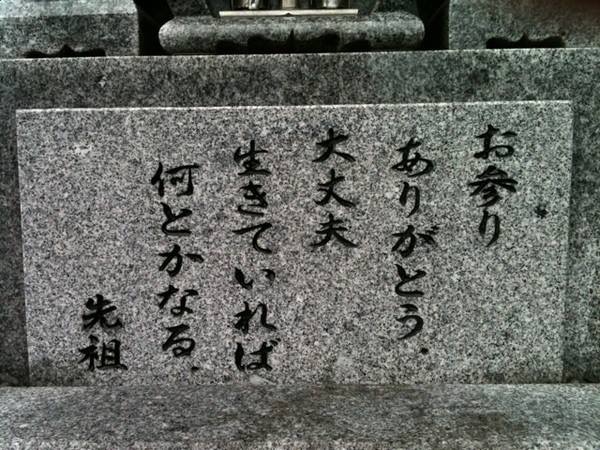 お参り
ありがとう.
大丈夫
生きていれば
何とかなる.
先祖